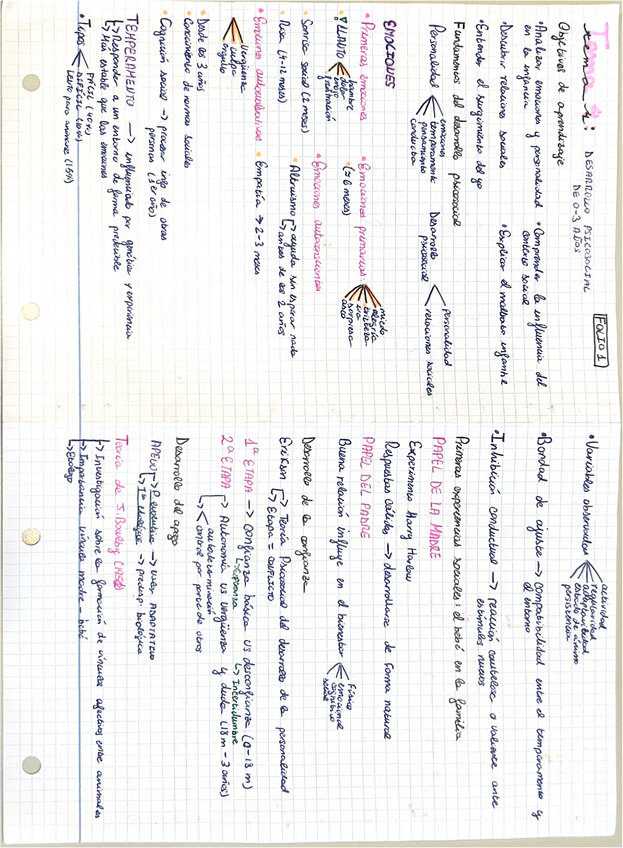 Tema 4: DESARROLLO PSICOSOCIAL
DE 0-3 AÑOS
FOLIO 1
Objetivos de aprendizaje
• Analizar emociones y personalidad
en la infancia
• Comprender la influencia del
contexto social
• Describir relaciones sociales
• Explicar el maltrato infantil
• Entender el surgimiento del yo
Fundamentos del desarrollo psicosocial
Personalidad
emociones
temperamento
pensamiento
conducta
Desarrollo
psicosocial
personalidad
relaciones sociales
EMOCIONES
• Primeras emociones
• LLANTO
hambre
dolor
enojo
frustración
• Sonrisa social (2 meses)
• Risa (4-12 meses)
• Emociones primarias:
(≈ 6 meses)
miedo
alegría
tristeza
ira
sorpresa
asco
• Emociones autoconscientes
Altruismo
ayuda sin esperar nada
antes de los 2 años
• Emociones autoevaluativas
vergüenza
culpa
orgullo
• Empatía → 2-3 meses
• Desde los 3 años
Conocimiento de normas sociales
• Cognición social → procesar info de otras
personas (1er año)
TEMPERAMENTO → influenciado por genética y experiencia
↳ Responder a un entorno de forma predecible
↳ Más estable que las emociones
• Tipos
FÁCIL (40%)
DIFÍCIL (10%)
Lento para animarse (15%)
• Variables observadas
actividad
regularidad
adaptabilidad
estado de ánimo
persistencia
• Bondad de ajuste → compatibilidad entre el temperamento y
el entorno
• Inhibición conductual → reacción cautelosa o valiente ante
estímulos nuevos
Primeras experiencias sociales: el bebé en la familia
PAPEL DE LA MADRE
Experimento Harry Harlow
Respuestas cálidas → desarrollarse de forma natural
PAPEL DEL PADRE
Buena relación influye en el bienestar
físico
emocional
cognitivo
social
Desarrollo de la confianza
Erikson
Teoría Psicosocial del desarrollo de la personalidad
Etapa = CONFLICTO
1ª ETAPA → confianza básica vs desconfianza (0-18 m)
↳ esperanza
↳ Incertidumbre
2ª ETAPA
Autonomía vs vergüenza y duda (18 m - 3 años)
autodeterminación
control por parte de otros
Desarrollo del apego
APEGO
P. evolutiva → valor ADAPTATIVO
T. etológica → predisp. biológica
Teoría de J. Bowlby
↳ Investigación sobre la formación de vínculos afectivos entre animales
↳ Importancia vínculo madre - bebé
↳ Etología